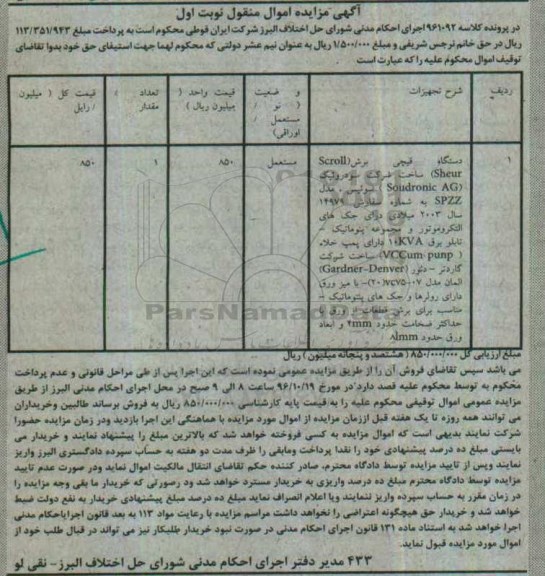 آگهی مزایده اموال منقول نوبت اول
در پرونده کلاسه ۹۶۱۰۹۲ اجرای احکام مدنی شورای حل اختلاف البرز شرکت ایران قوطی محکوم است به پرداخت مبلغ ۱۱۳/۳۵۱/۹۴۳
ریال در حق خانم نرجس شریفی و مبلغ ۱/۵۰۰/۰۰۰ ریال به عنوان نیم عشر دولتی که محکوم لهما جهت استیفای حق خود بدوا تقاضای
توقیف اموال محکوم علیه را که عبارت است
ردیف
شرح تجهیزات
و ضعیت ( نو / مستعمل / اوراقی)
قیمت واحد ( میلیون ریال )
تعداد / مقدار
قیمت کل ( میلیون / رایل
۱
دستگاه قیچی برش(Scroll
Sheur) ساخت شرکت سودرونیک
(Soudronic AG) سوئیس ، مدل
SPZZ به شماره سفارش ۱۴۹۷۹
سال ۲۰۰۳ میلادی دارای جک های
الکتروموتور و مجموعه پنوماتیک –
تابلو برق ۱۰KVA دارای پمپ خلاء
( VCCum punp) ساخت شرکت
گاردنر – دنور (Gardner-Denver)
آلمان مدل – با میز ورق
دارای رولرها و جک های پنئوماتیک –
مناسب برای برش قطعات ، ورق با
حداکثر ضخامت حدود ۴mm و ابعاد
ورق حدود
مستعمل
۸۵۰
۱
۸۵۰
ParsNamadData
مبلغ ارزیابی کل ۸۵۰/۰۰۰/۰۰۰ ( هشتصد و پنجاه میلیون ) ریال
می باشد سپس تقاضای فروش آن را از طریق مزایده عمومی نموده است که این اجرا پس از طی مراحل قانونی و عدم پرداخت
محکوم به توسط محکوم علیه قصد دارد در مورخ ۹۶/۱۰/۱۹ ساعت ۸ الی ۹ صبح در محل اجرای احکام مدنی البرز از طریق
مزایده عمومی اموال توقیفی محکوم علیه را به قیمت پایه کارشناسی ۸۵۰/۰۰۰/۰۰۰ ریال به فروش برساند طالبین وخریداران
می توانند همه روزه تا یک هفته قبل اززمان مزایده از اموال مورد مزایده با هماهنگی این اجرا بازدید ودر زمان مزایده حضورا
شرکت نمایند بدیهی است که اموال مزایده به کسی فروخته خواهد شد که بالاترین مبلغ را پیشنهاد نمایند و خریدار می
بایستی مبلغ ده درصد پیشنهادی خود را نقدا پرداخت ومابقی را ظرف مدت دو هفته به حساب سپرده دادگستری البرز واریز
نمایند وپس از تایید مزایده توسط دادگاه محترم، صادر کننده حکم تقاضای انتقال مالکیت اموال نماید ودر صورت عدم تایید
مزایده توسط دادگاه محترم مبلغ ده درصد واریزی به خریدار مسترد خواهد شد ود رصورتی که خریدار ما بقی وجه مزایده را
در زمان مقرر به حساب سپرده واریز ننمایند ویا اعلام انصراف نماید مبلغ ده درصد مبلغ پیشنهادی خریدار به نفع دولت ضبط
خواهد شد و خریدار حق هیچگونه اعتراضی را نخواهد داشت مراسم مزایده با رعایت مواد ۱۱۳ به بعد قانون اجرایاحکام مدنی
اجرا خواهد شد به استناد ماده ۱۳۱ قانون اجرای احکام مدنی در صورت نبود خریدار طلبکار نیز می تواند در قبال طلب خود از
اموال مورد مزایده قبول نماید.
۴۳۳ مدیر دفتر اجرای احکام مدنی شورای حل اختلاف البرز- نقی لو